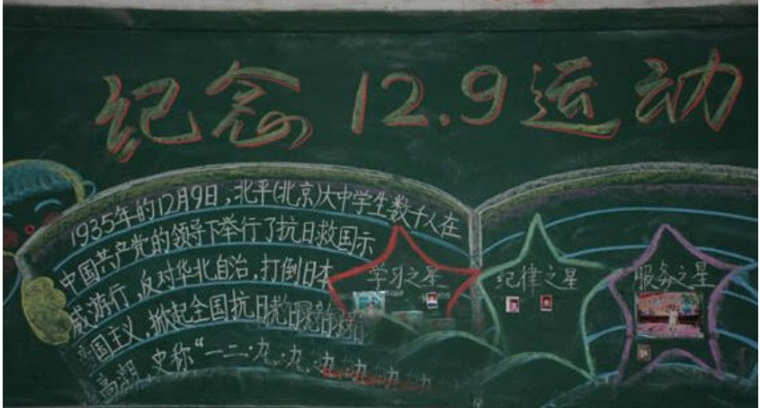 纪念12.9运动
1935年的12月9日,北平(北京)大中学生数千人在
中国共产党的领导下举行了抗日救国示
威游行,反对华北自治,打倒日本
国主义,掀起全国抗日救
高潮,史称“一二·九
学习之星
纪律之星
服务之星